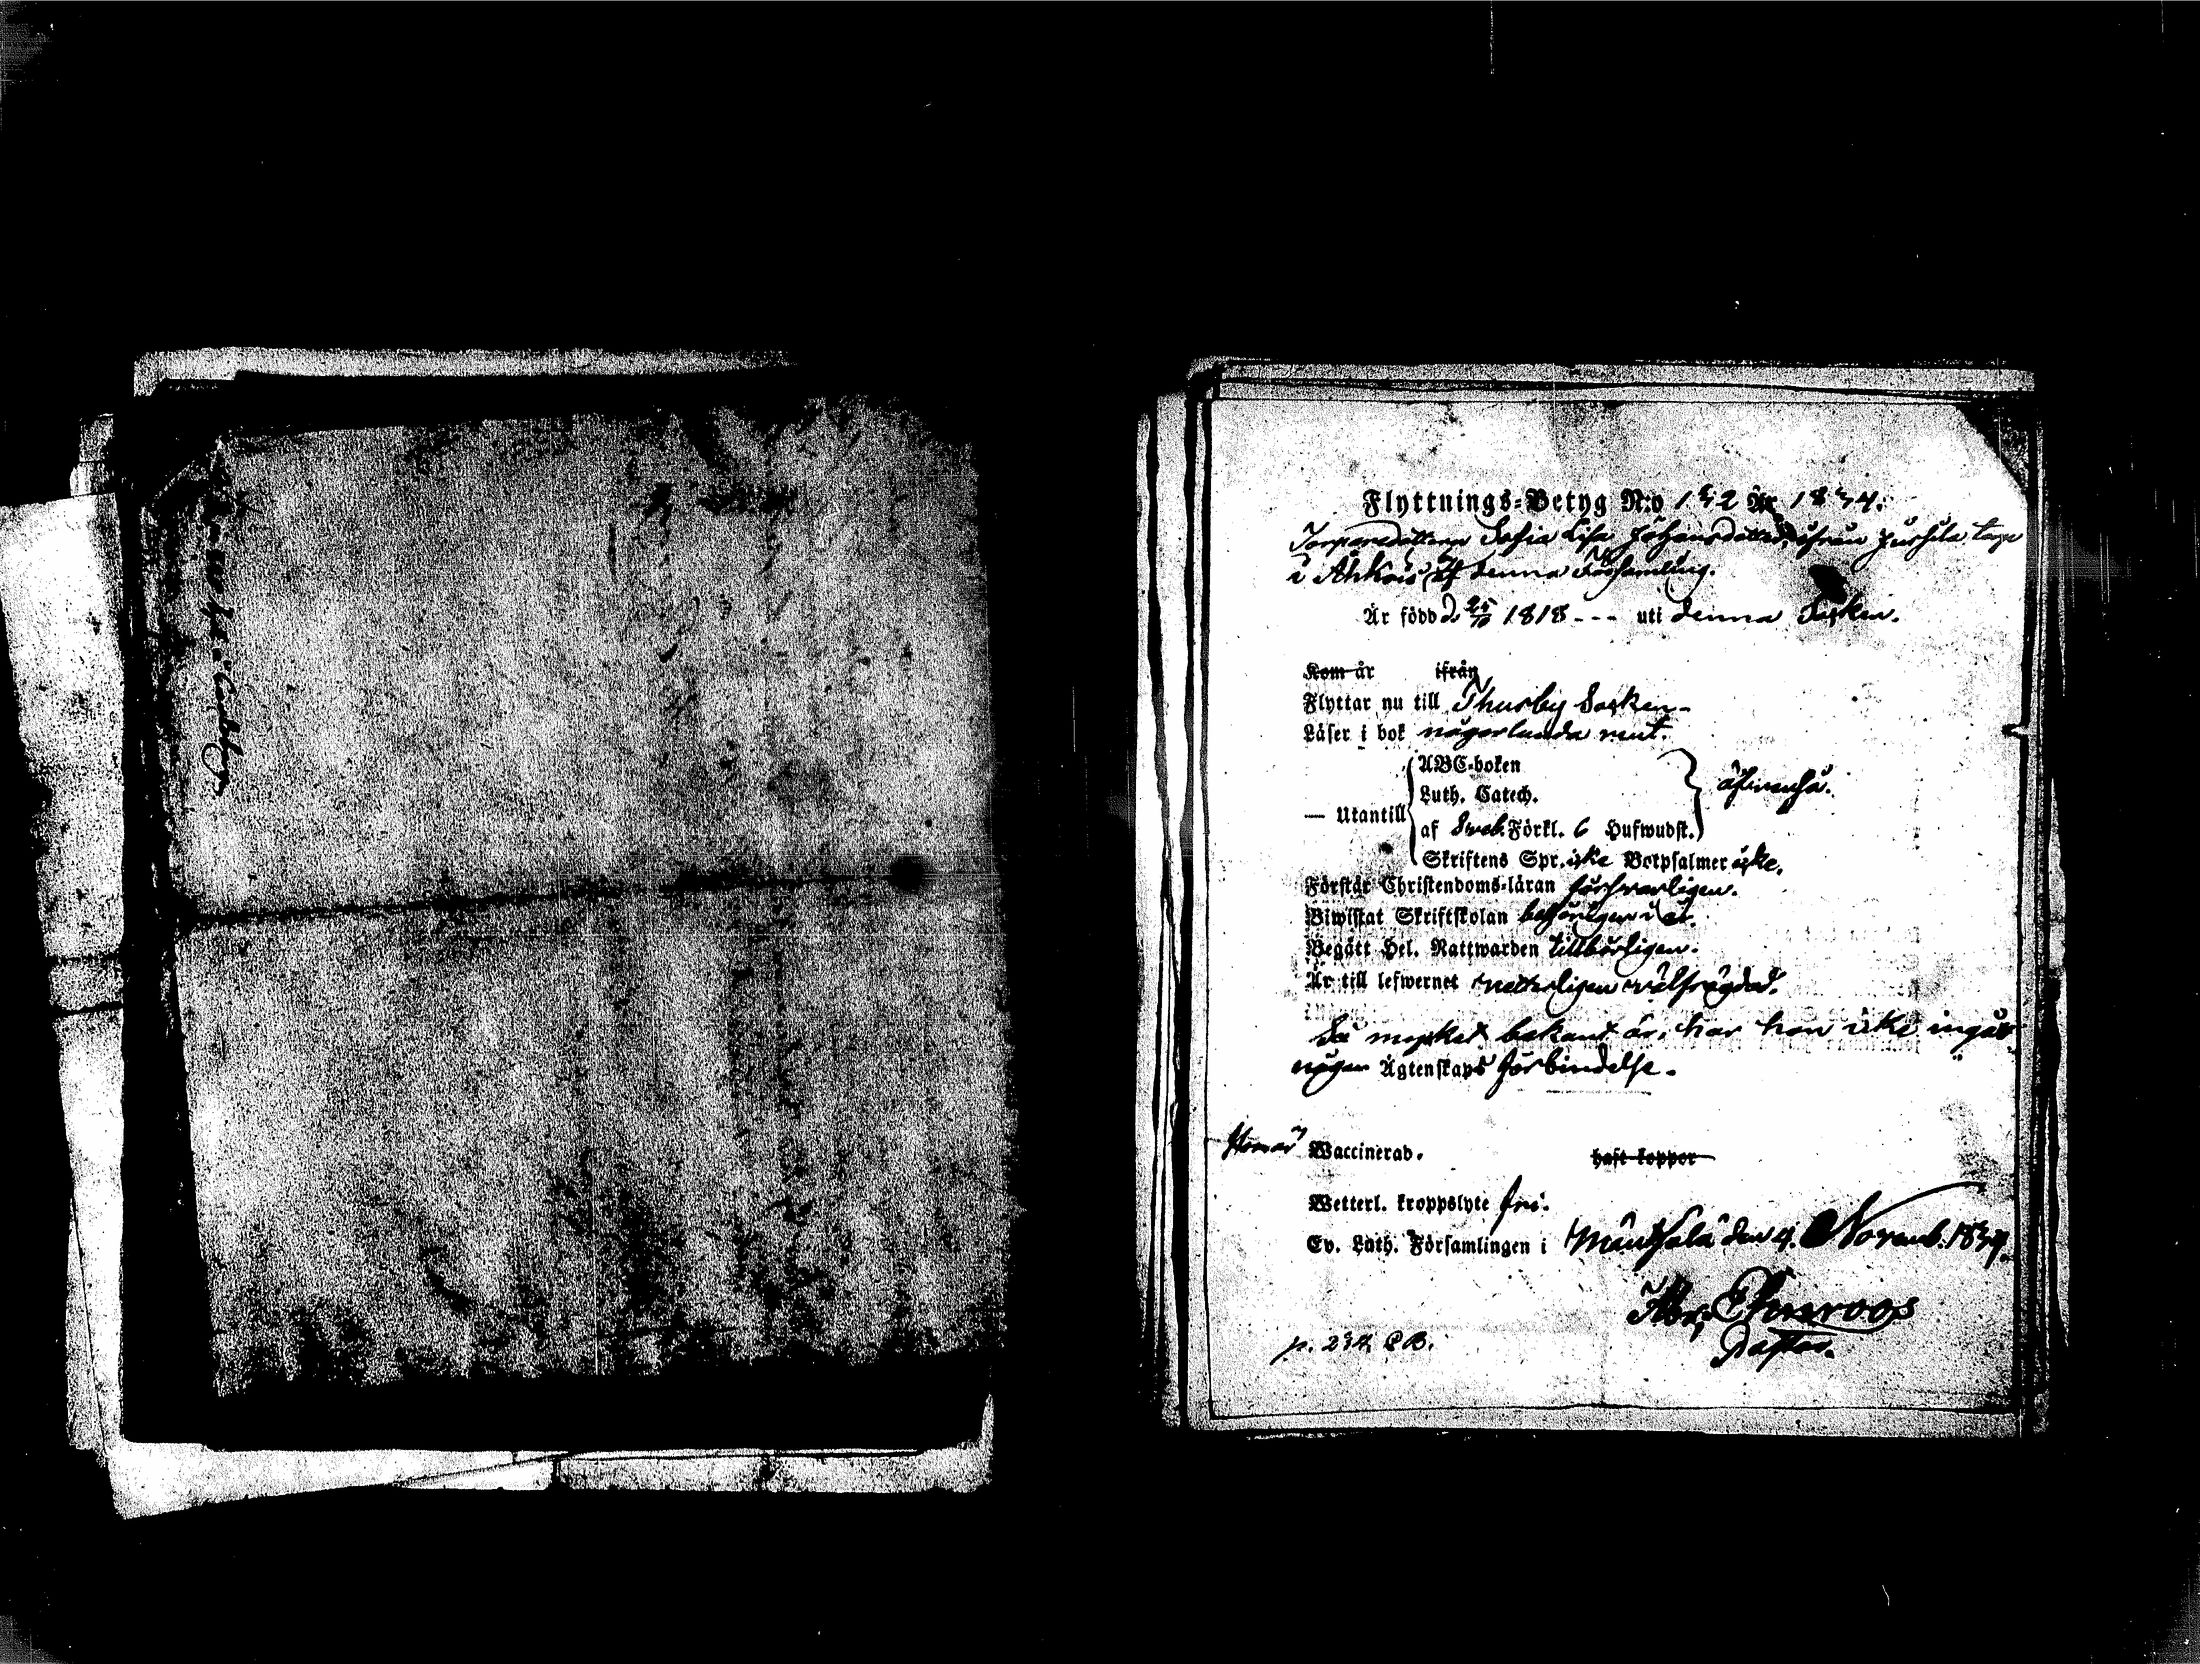 Flyttnings-Betyg N:o 132 År 1834.
Torparedottren Sofia Lisa Johansdotter, ifrån torp
i Ahkois af denna Församling.
Är född d. 25/10 1818 - - - uti denna Socken.
Kom år ifrån
Flyttar nu till Thusby Socken.
Läser i bok någorlunda rent.
ABC-boken
Luth. Catech.
— Utantill
af Sveb. Förkl. 6 Hufwudst.
Skriftens Spr. icke Botpsalmer icke.
Förstår Christendoms-läran försvarligen.
Biwistat Skriftskolan
Begått Hel. Nattwarden tillbörligen.
Är till lefwernet välfrägdad.
Så mycket bekant är, har hon icke ingått
någon Ägtenskaps förbindelse.
Waccinerad. haft koppor
Wetterl. kroppslyte fri.
Ev. Luth. Församlingen i Mäntsälä den 4. Novemb. 1834.
Pastor.
p. 234 CB.